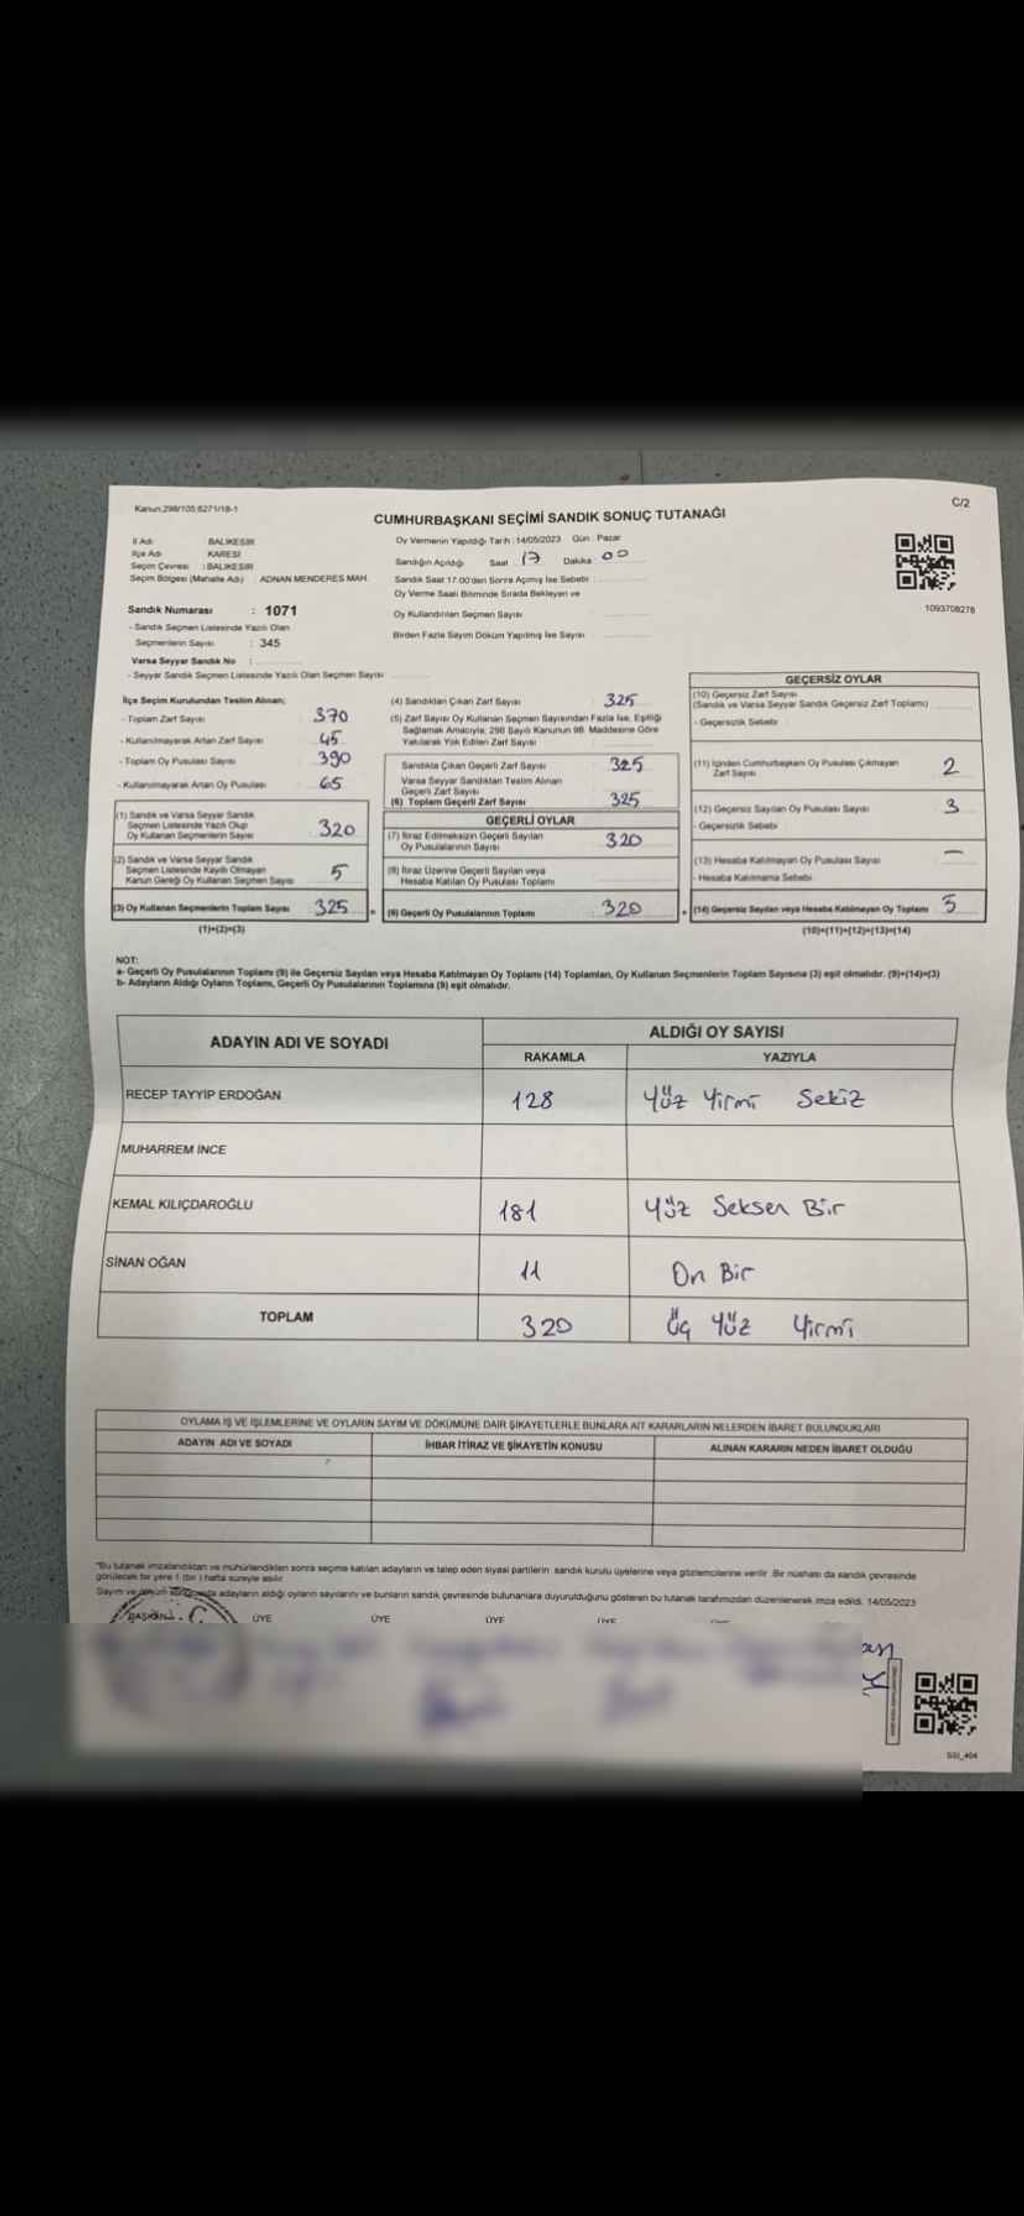 Kanun:298/105;6271/18-1
C/2
CUMHURBAŞKANI SEÇİMİ SANDIK SONUÇ TUTANAĞI
İl Adı BALIKESİR
İlçe Adı KARESİ
Seçim Çevresi : BALIKESİR
Seçim Bölgesi (Mahalle Adı) ADNAN MENDERES MAH.
Sandık Numarası : 1071
- Sandık Seçmen Listesinde Yazılı Olan
Seçmenlerin Sayısı : 345
Varsa Seyyar Sandık No :
- Seyyar Sandık Seçmen Listesinde Yazılı Olan Seçmen Sayısı
Oy Vermenin Yapıldığı Tarih : 14/05/2023 Gün : Pazar
Sandığın Açıldığı Saat 17 Dakika 00
Sandık Saat 17.00'dan Sonra Açılmış İse Sebebi
Oy Verme Saati Bitiminde Sırada Bekleyen ve
Oy Kullandırılan Seçmen Sayısı
Birden Fazla Sayım Döküm Yapılmış İse Sayısı
1093708278
İlçe Seçim Kurulundan Teslim Alınan;
- Toplam Zarf Sayısı 370
- Kullanılmayarak Artan Zarf Sayısı 45
- Toplam Oy Pusulası Sayısı 390
- Kullanılmayarak Artan Oy Pusulası 65
(1) Sandık ve Varsa Seyyar Sandık
Seçmen Listesinde Yazılı Olup
Oy Kullanan Seçmenlerin Sayısı 320
(2) Sandık ve Varsa Seyyar Sandık
Seçmen Listesinde Kayıtlı Olmayan
Kanun Gereği Oy Kullanan Seçmen Sayısı 5
(3) Oy Kullanan Seçmenlerin Toplam Sayısı 325 =
(1)+(2)=(3)
(4) Sandıktan Çıkan Zarf Sayısı 325
(5) Zarf Sayısı Oy Kullanan Seçmen Sayısından Fazla İse, Eşitliği
Sağlamak Amacıyla; 298 Sayılı Kanunun 98. Maddesine Göre
Yakılarak Yok Edilen Zarf Sayısı
Sandıkta Çıkan Geçerli Zarf Sayısı 325
Varsa Seyyar Sandıktan Teslim Alınan
Geçerli Zarf Sayısı
(6) Toplam Geçerli Zarf Sayısı 325
GEÇERLİ OYLAR
(7) İtiraz Edilmeksizin Geçerli Sayılan
Oy Pusulalarının Sayısı 320
(8) İtiraz Üzerine Geçerli Sayılan veya
Hesaba Katılan Oy Pusulası Toplamı
(9) Geçerli Oy Pusulalarının Toplamı : 320 +
GEÇERSİZ OYLAR
(10) Geçersiz Zarf Sayısı
(Sandık ve Varsa Seyyar Sandık Geçersiz Zarf Toplamı)
- Geçersizlik Sebebi
(11) İçinden Cumhurbaşkanı Oy Pusulası Çıkmayan
Zarf Sayısı 2
(12) Geçersiz Sayılan Oy Pusulası Sayısı 3
- Geçersizlik Sebebi
(13) Hesaba Katılmayan Oy Pusulası Sayısı —
- Hesaba Katılmama Sebebi
(14) Geçersiz Sayılan veya Hesaba Katılmayan Oy Toplamı 5
(10)+(11)+(12)+(13)=(14)
NOT:
a- Geçerli Oy Pusulalarının Toplamı (9) ile Geçersiz Sayılan veya Hesaba Katılmayan Oy Toplamı (14) Toplamları, Oy Kullanan Seçmenlerin Toplam Sayısına (3) eşit olmalıdır. (9)+(14)=(3)
b- Adayların Aldığı Oyların Toplamı, Geçerli Oy Pusulalarının Toplamına (9) eşit olmalıdır.
ADAYIN ADI VE SOYADI
ALDIĞI OY SAYISI
RAKAMLA YAZIYLA
RECEP TAYYİP ERDOĞAN 128 Yüz Yirmi Sekiz
MUHARREM İNCE
KEMAL KILIÇDAROĞLU 181 Yüz Seksen Bir
SİNAN OĞAN 11 On Bir
TOPLAM 320 Üç Yüz Yirmi
OYLAMA İŞ VE İŞLEMLERİNE VE OYLARIN SAYIM VE DÖKÜMÜNE DAİR ŞİKAYETLERLE BUNLARA AİT KARARLARIN NELERDEN İBARET BULUNDUKLARI
ADAYIN ADI VE SOYADI İHBAR İTİRAZ VE ŞİKAYETİN KONUSU ALINAN KARARIN NEDEN İBARET OLDUĞU
"Bu tutanak imzalandıktan ve mühürlendikten sonra seçime katılan adayların ve talep eden siyasi partilerin sandık kurulu üyelerine veya gözlemcilerine verilir. Bir nüshası da sandık çevresinde
görülecek bir yere 1 (bir ) hafta süreyle asılır.
Sayım ve döküm adayların aldığı oyların sayılarını ve bunların sandık çevresinde bulunanlara duyurulduğunu gösteren bu tutanak tarafımızdan düzenlenerek imza edildi. 14/05/2023
BAŞKAN ÜYE ÜYE ÜYE ÜYE
SSİ_404